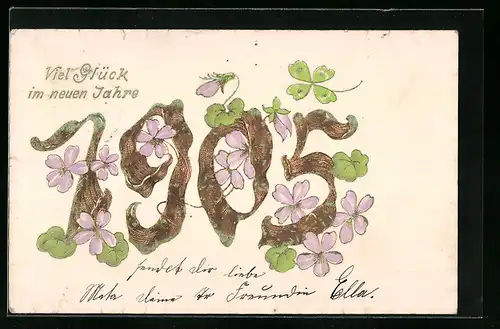 Viel Glück
im neuen Jahre
1905
sendet dir liebe
Meta deine Freundin Ella.